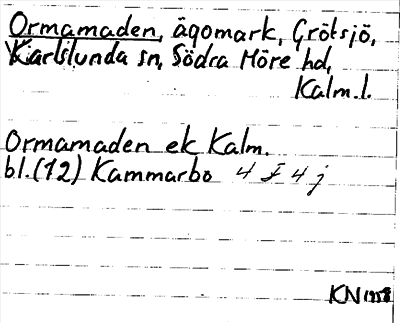 Ormamaden, ägomark, Grötsjö,
Karlslunda sn, Södra Möre hd,
Kalm.l.
Ormamaden ek Kalm.
bl.(12) Kammarbo 4 I 4 j
KN 1958